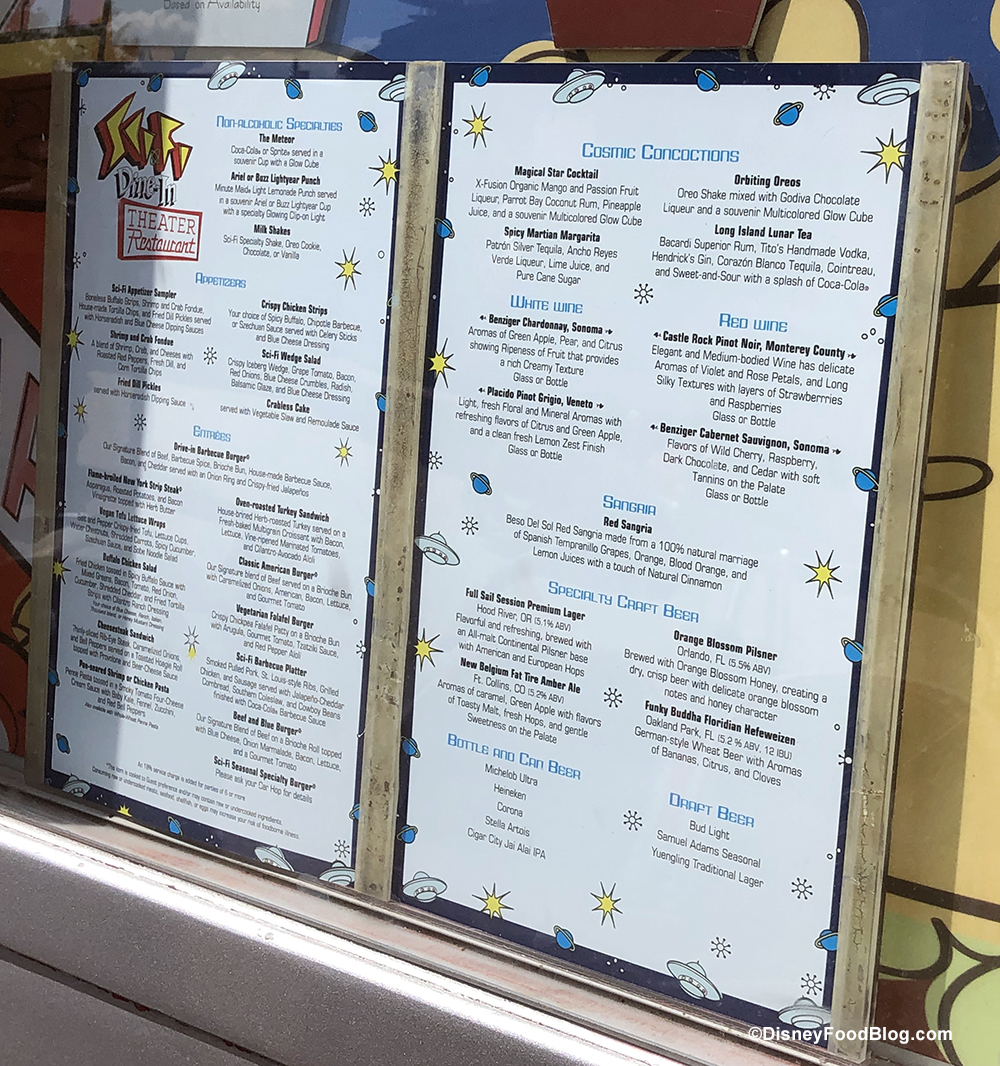 Based on Availability
Sci-Fi
Dine-In
THEATER
Restaurant
Non-alcoholic Specialties
The Meteor
Coca-Cola® or Sprite® served in a
souvenir Cup with a Glow Cube
Ariel or Buzz Lightyear Punch
Minute Maid® Light Lemonade Punch served
in a souvenir Ariel or Buzz Lightyear Cup
with a specialty Glowing Clip-on Light
Milk Shakes
Sci-Fi Specialty Shake, Oreo Cookie,
Chocolate, or Vanilla
Appetizers
Sci-Fi Appetizer Sampler
Boneless Buffalo Strips, Shrimp and Crab Fondue,
House-made Tortilla Chips, and Fried Dill Pickles served
with Horseradish and Blue Cheese Dipping Sauces
Shrimp and Crab Fondue
A blend of Shrimp, Crab, and Cheeses with
Roasted Red Peppers, Fresh Dill, and
Corn Tortilla Chips
Fried Dill Pickles
served with Horseradish Dipping Sauce
Crispy Chicken Strips
Your choice of Spicy Buffalo, Chipotle Barbecue,
or Szechuan Sauce served with Celery Sticks
and Blue Cheese Dressing
Sci-Fi Wedge Salad
Crispy Iceberg Wedge, Grape Tomato, Bacon,
Red Onions, Blue Cheese Crumbles, Radish,
Balsamic Glaze, and Blue Cheese Dressing
Crabless Cake
served with Vegetable Slaw and Remoulade Sauce
Entrées
Drive-in Barbecue Burger*
Our Signature Blend of Beef, Barbecue Spice, Brioche Bun, House-made Barbecue Sauce,
Bacon, and Cheddar served with an Onion Ring and Crispy-fried Jalapeños
Flame-broiled New York Strip Steak*
Asparagus, Roasted Potatoes, and Bacon
Vinaigrette topped with Herb Butter
Vegan Tofu Lettuce Wraps
Salt and Pepper Crispy-fried Tofu, Lettuce Cups,
Water Chestnuts, Shredded Carrots, Spicy Cucumber,
Szechuan Sauce, and Sobe Noodle Salad
Buffalo Chicken Salad
Fried Chicken tossed in Spicy Buffalo Sauce with
Mixed Greens, Bacon, Tomato, Red Onion,
Cucumber, Shredded Cheddar, and Fried Tortilla
Strips with Cilantro Ranch Dressing
Your choice of Blue Cheese, Ranch, Italian,
Thousand Island, or Honey Mustard Dressing
Cheesesteak Sandwich
Thinly-sliced Rib-Eye Steak, Caramelized Onions,
and Bell Peppers served on a Toasted Hoagie Roll
topped with Provolone and Beer-Cheese Sauce
Pan-seared Shrimp or Chicken Pasta
Penne Pasta tossed in a Smoky Tomato Four-Cheese
Cream Sauce with Baby Kale, Fennel, Zucchini,
and Red Bell Peppers
Also available with Whole-Wheat Penne Pasta
Oven-roasted Turkey Sandwich
House-brined Herb-roasted Turkey served on a
Fresh-baked Multigrain Croissant with Bacon,
Lettuce, Vine-ripened Marinated Tomatoes,
and Cilantro-Avocado Aïoli
Classic American Burger*
Our Signature blend of Beef served on a Brioche Bun
with Caramelized Onions, American, Bacon, Lettuce,
and Gourmet Tomato
Vegetarian Falafel Burger
Crispy Chickpea Falafel Patty on a Brioche Bun
with Arugula, Gourmet Tomato, Tzatziki Sauce,
and Red Pepper Aïoli
Sci-Fi Barbecue Platter
Smoked Pulled Pork, St. Louis-style Ribs, Grilled
Chicken, and Sausage served with Jalapeño-Cheddar
Cornbread, Southern Coleslaw, and Cowboy Beans
finished with Coca-Cola® Barbecue Sauce
Beef and Blue Burger*
Our Signature Blend of Beef on a Brioche Roll topped
with Blue Cheese, Onion Marmalade, Bacon, Lettuce,
and a Gourmet Tomato
Sci-Fi Seasonal Specialty Burger*
Please ask your Car Hop for details
An 18% service charge is added for parties of 6 or more
*This item is cooked to Guest preference and/or may contain raw or undercooked ingredients.
Consuming raw or undercooked meats, seafood, shellfish, or eggs may increase your risk of foodborne illness.
Cosmic Concoctions
Magical Star Cocktail
X-Fusion Organic Mango and Passion Fruit
Liqueur, Parrot Bay Coconut Rum, Pineapple
Juice, and a souvenir Multicolored Glow Cube
Spicy Martian Margarita
Patrón Silver Tequila, Ancho Reyes
Verde Liqueur, Lime Juice, and
Pure Cane Sugar
Orbiting Oreos
Oreo Shake mixed with Godiva Chocolate
Liqueur and a souvenir Multicolored Glow Cube
Long Island Lunar Tea
Bacardi Superior Rum, Tito's Handmade Vodka,
Hendrick's Gin, Corazón Blanco Tequila, Cointreau,
and Sweet-and-Sour with a splash of Coca-Cola®
White wine
Benziger Chardonnay, Sonoma
Aromas of Green Apple, Pear, and Citrus
showing Ripeness of Fruit that provides
a rich Creamy Texture
Glass or Bottle
Placido Pinot Grigio, Veneto
Light, fresh Floral and Mineral Aromas with
refreshing flavors of Citrus and Green Apple,
and a clean fresh Lemon Zest Finish
Glass or Bottle
Red wine
Castle Rock Pinot Noir, Monterey County
Elegant and Medium-bodied Wine has delicate
Aromas of Violet and Rose Petals, and Long
Silky Textures with layers of Strawberries
and Raspberries
Glass or Bottle
Benziger Cabernet Sauvignon, Sonoma
Flavors of Wild Cherry, Raspberry,
Dark Chocolate, and Cedar with Soft
Tannins on the Palate
Glass or Bottle
Sangria
Red Sangria
Beso Del Sol Red Sangria made from a 100% natural marriage
of Spanish Tempranillo Grapes, Orange, Blood Orange, and
Lemon Juices with a touch of Natural Cinnamon
Specialty Craft Beer
Full Sail Session Premium Lager
Hood River, OR (5.1% ABV)
Flavorful and refreshing, brewed with
an All-malt Continental Pilsner base
with American and European Hops
New Belgium Fat Tire Amber Ale
Ft. Collins, CO (5.2% ABV)
Aromas of caramel, Green Apple with flavors
of Toasty Malt, fresh Hops, and gentle
Sweetness on the Palate
Orange Blossom Pilsner
Orlando, FL (5.5% ABV)
Brewed with Orange Blossom Honey, creating a
dry, crisp beer with delicate orange blossom
notes and honey character
Funky Buddha Floridian Hefeweizen
Oakland Park, FL (5.2 % ABV, 12 IBU)
German-style Wheat Beer with Aromas
of Bananas, Citrus, and Cloves
Bottle and Can Beer
Michelob Ultra
Heineken
Corona
Stella Artois
Cigar City Jai Alai IPA
Draft Beer
Bud Light
Samuel Adams Seasonal
Yuengling Traditional Lager
©DisneyFoodBlog.com